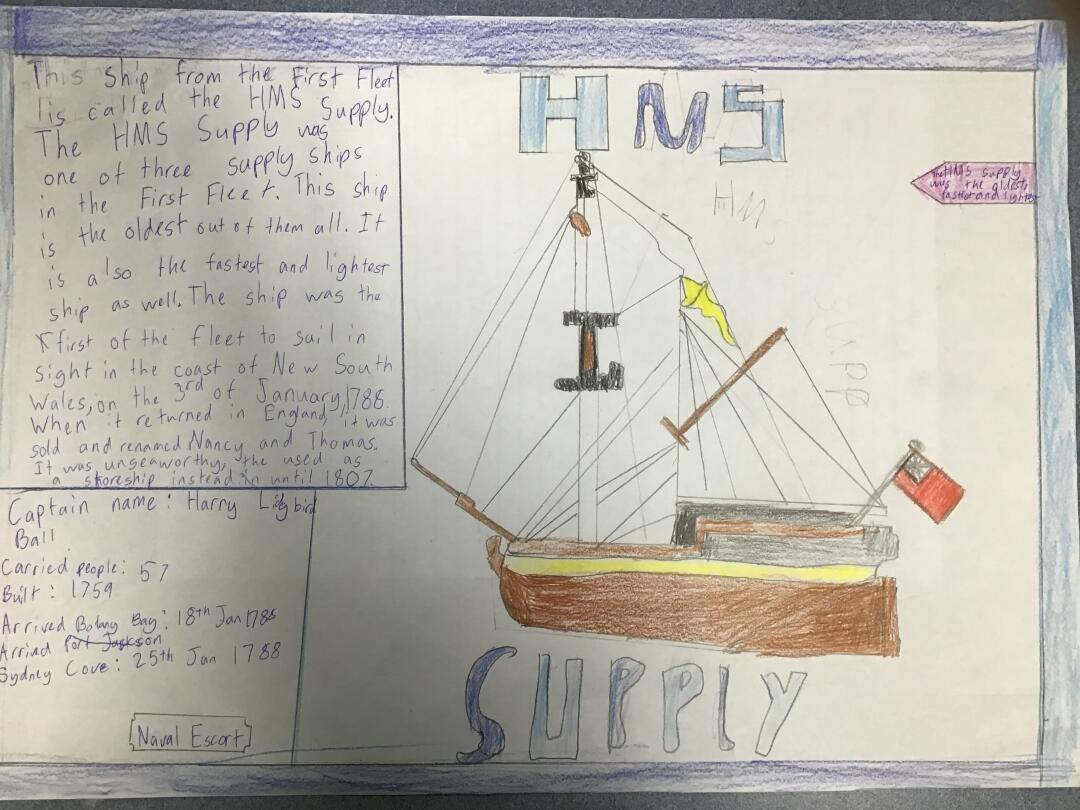 This ship from the First Fleet
is called the HMS Supply.
The HMS Supply was
one of three supply ships
in the First Fleet. This ship
is the oldest out of them all. It
is also the fastest and lightest
ship as well. The ship was the
first of the fleet to sail in
sight in the coast of New South
Wales, on the 3rd of January, 1788.
When it returned in England, it was
sold and renamed Nancy and Thomas.
It was unseaworthy, the used as
a storeship instead in until 1807.
Captain name: Harry Lidgbird
Ball
Carried people: 57
Built: 1759
Arrived Botany Bay: 18th Jan 1788
Arrived Port Jackson
Sydney Cove: 25th Jan 1788
Naval Escort
HMS
HMS
The HMS supply
was the oldest,
faster and lightest
SUPP
SUPPLY